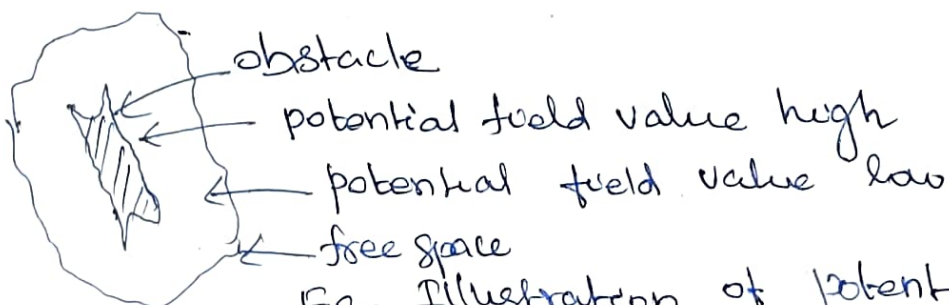 obstacle
potential field value high
potential field value low
free space
Fig. Illustration of Potent